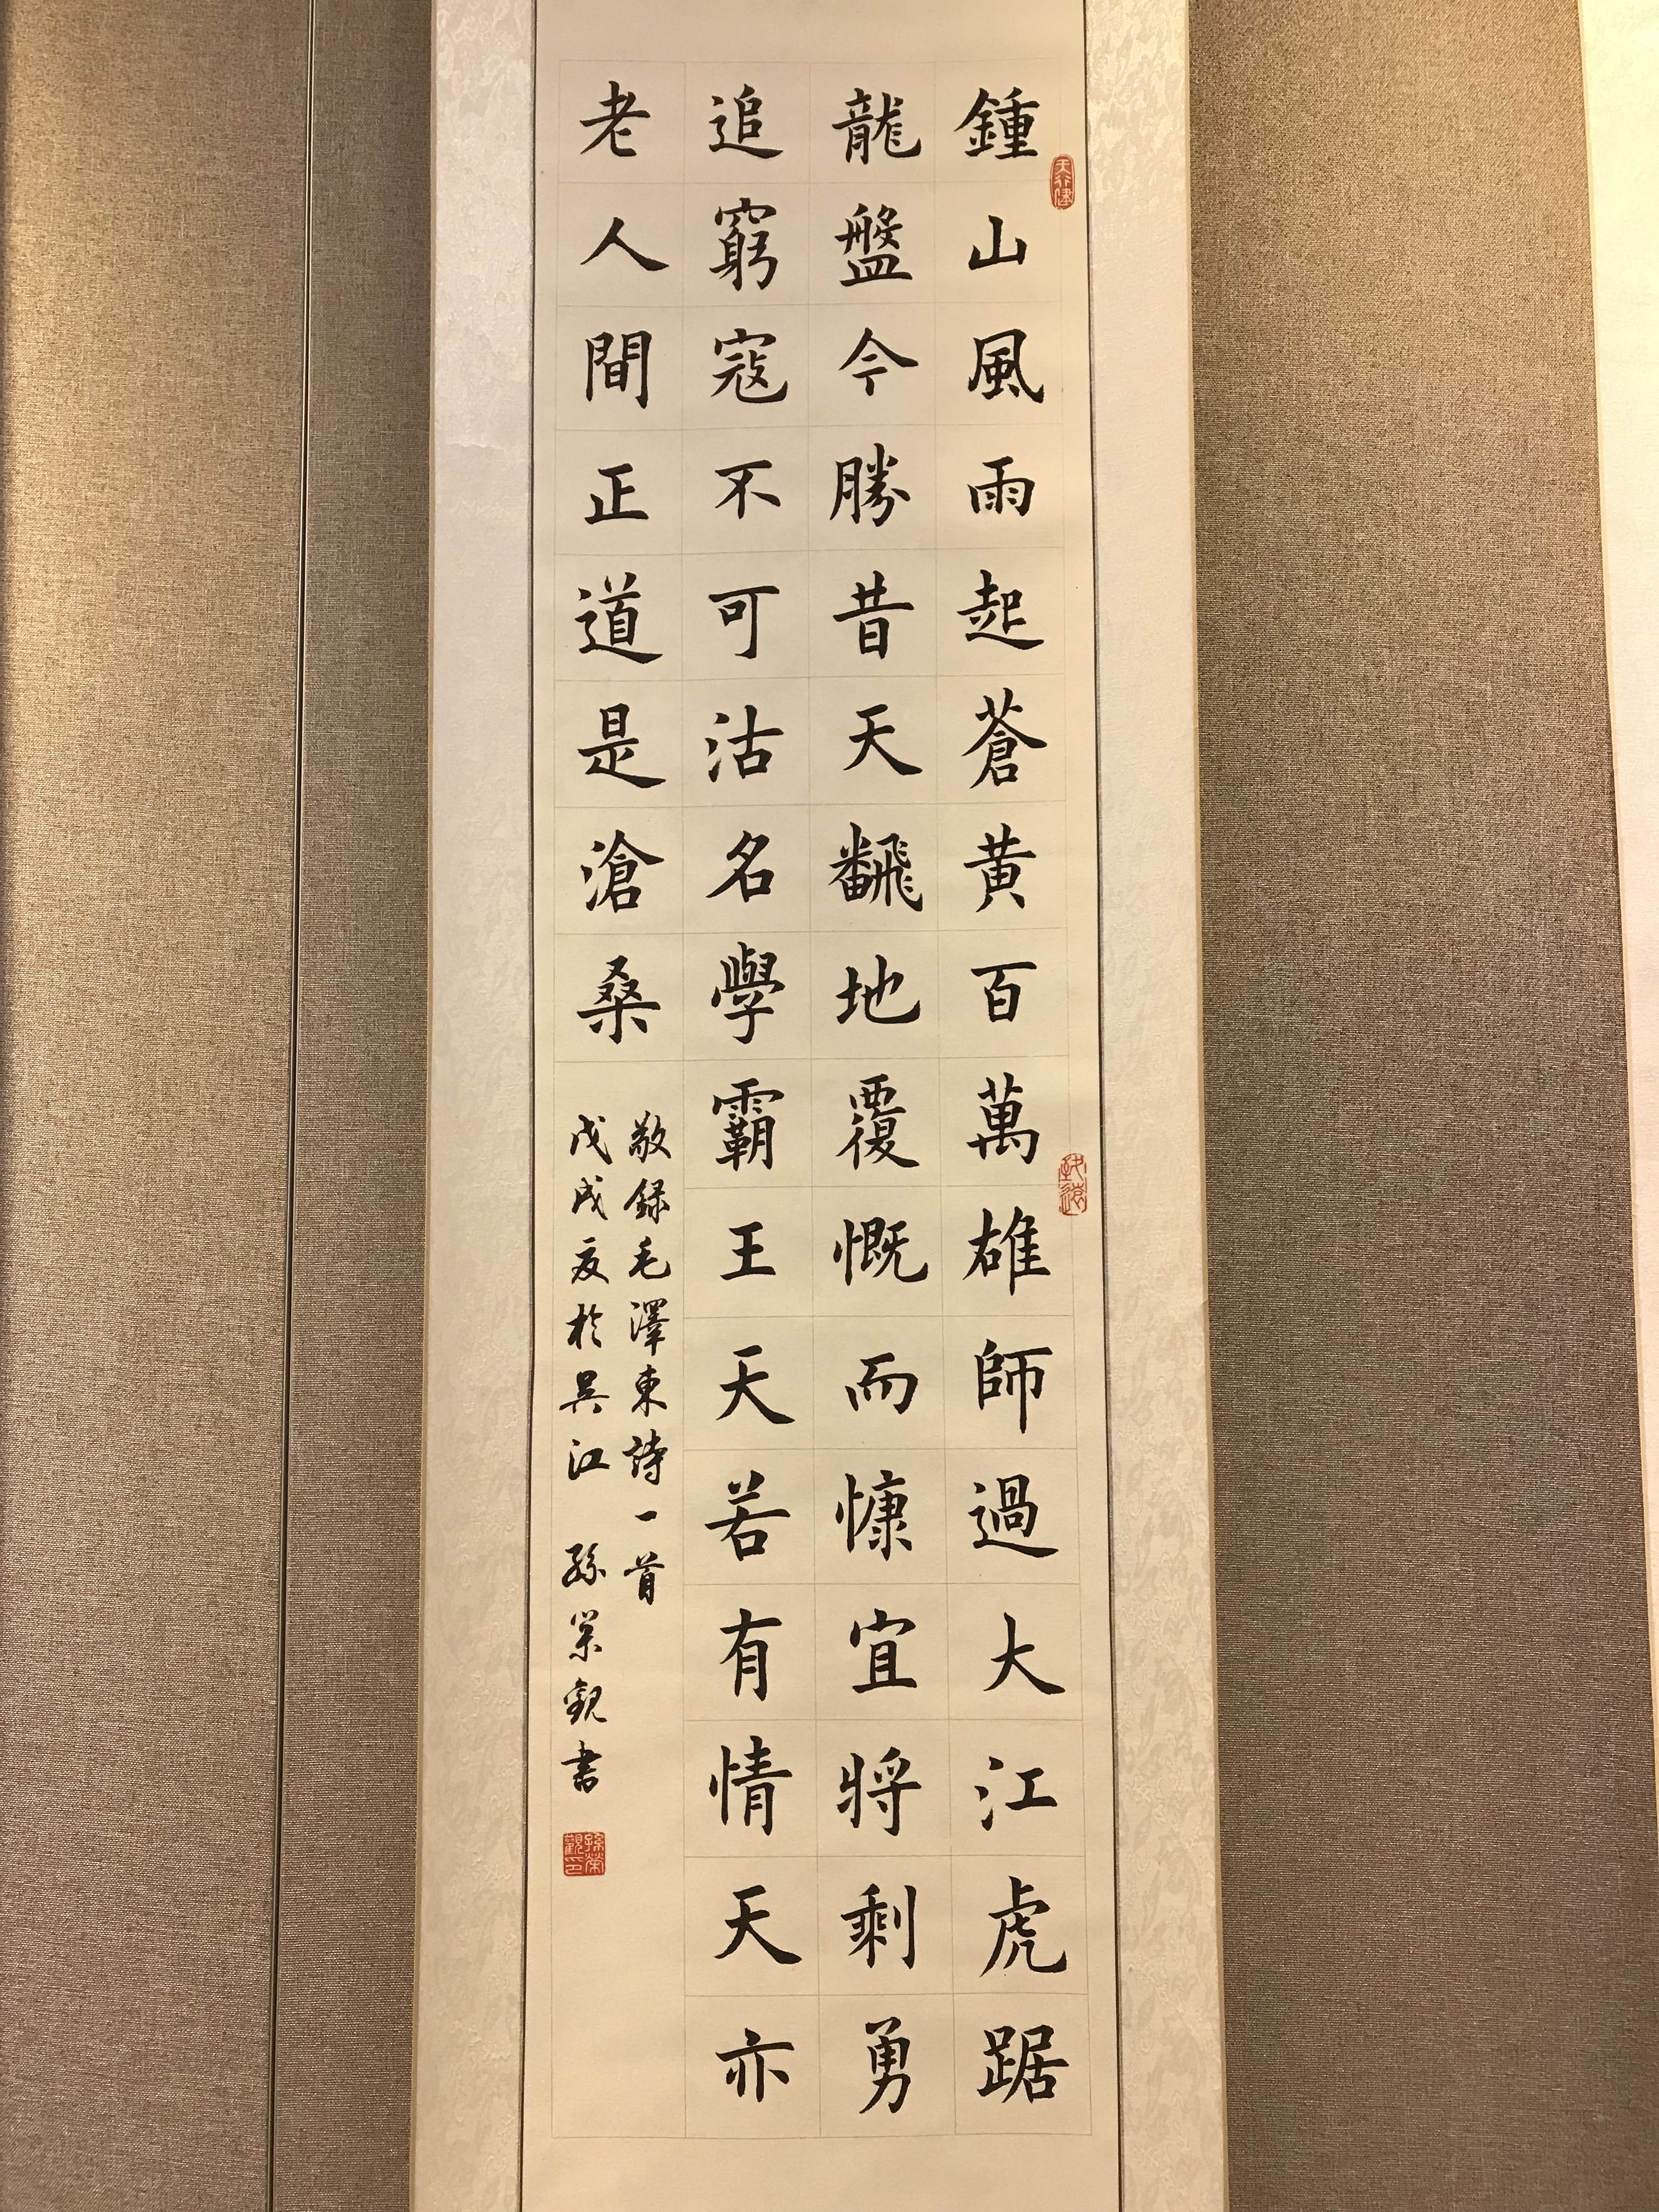 鍾山風雨起蒼黄百萬雄師過大江虎踞
龍盤今勝昔天飜地覆慨而慷宜将剩勇
追窮寇不可沽名學霸王天若有情天亦
老人間正道是滄桑
敬録毛澤東詩一首
戊戌夏於吴江 孫榮觀書
天行健
孫榮觀印